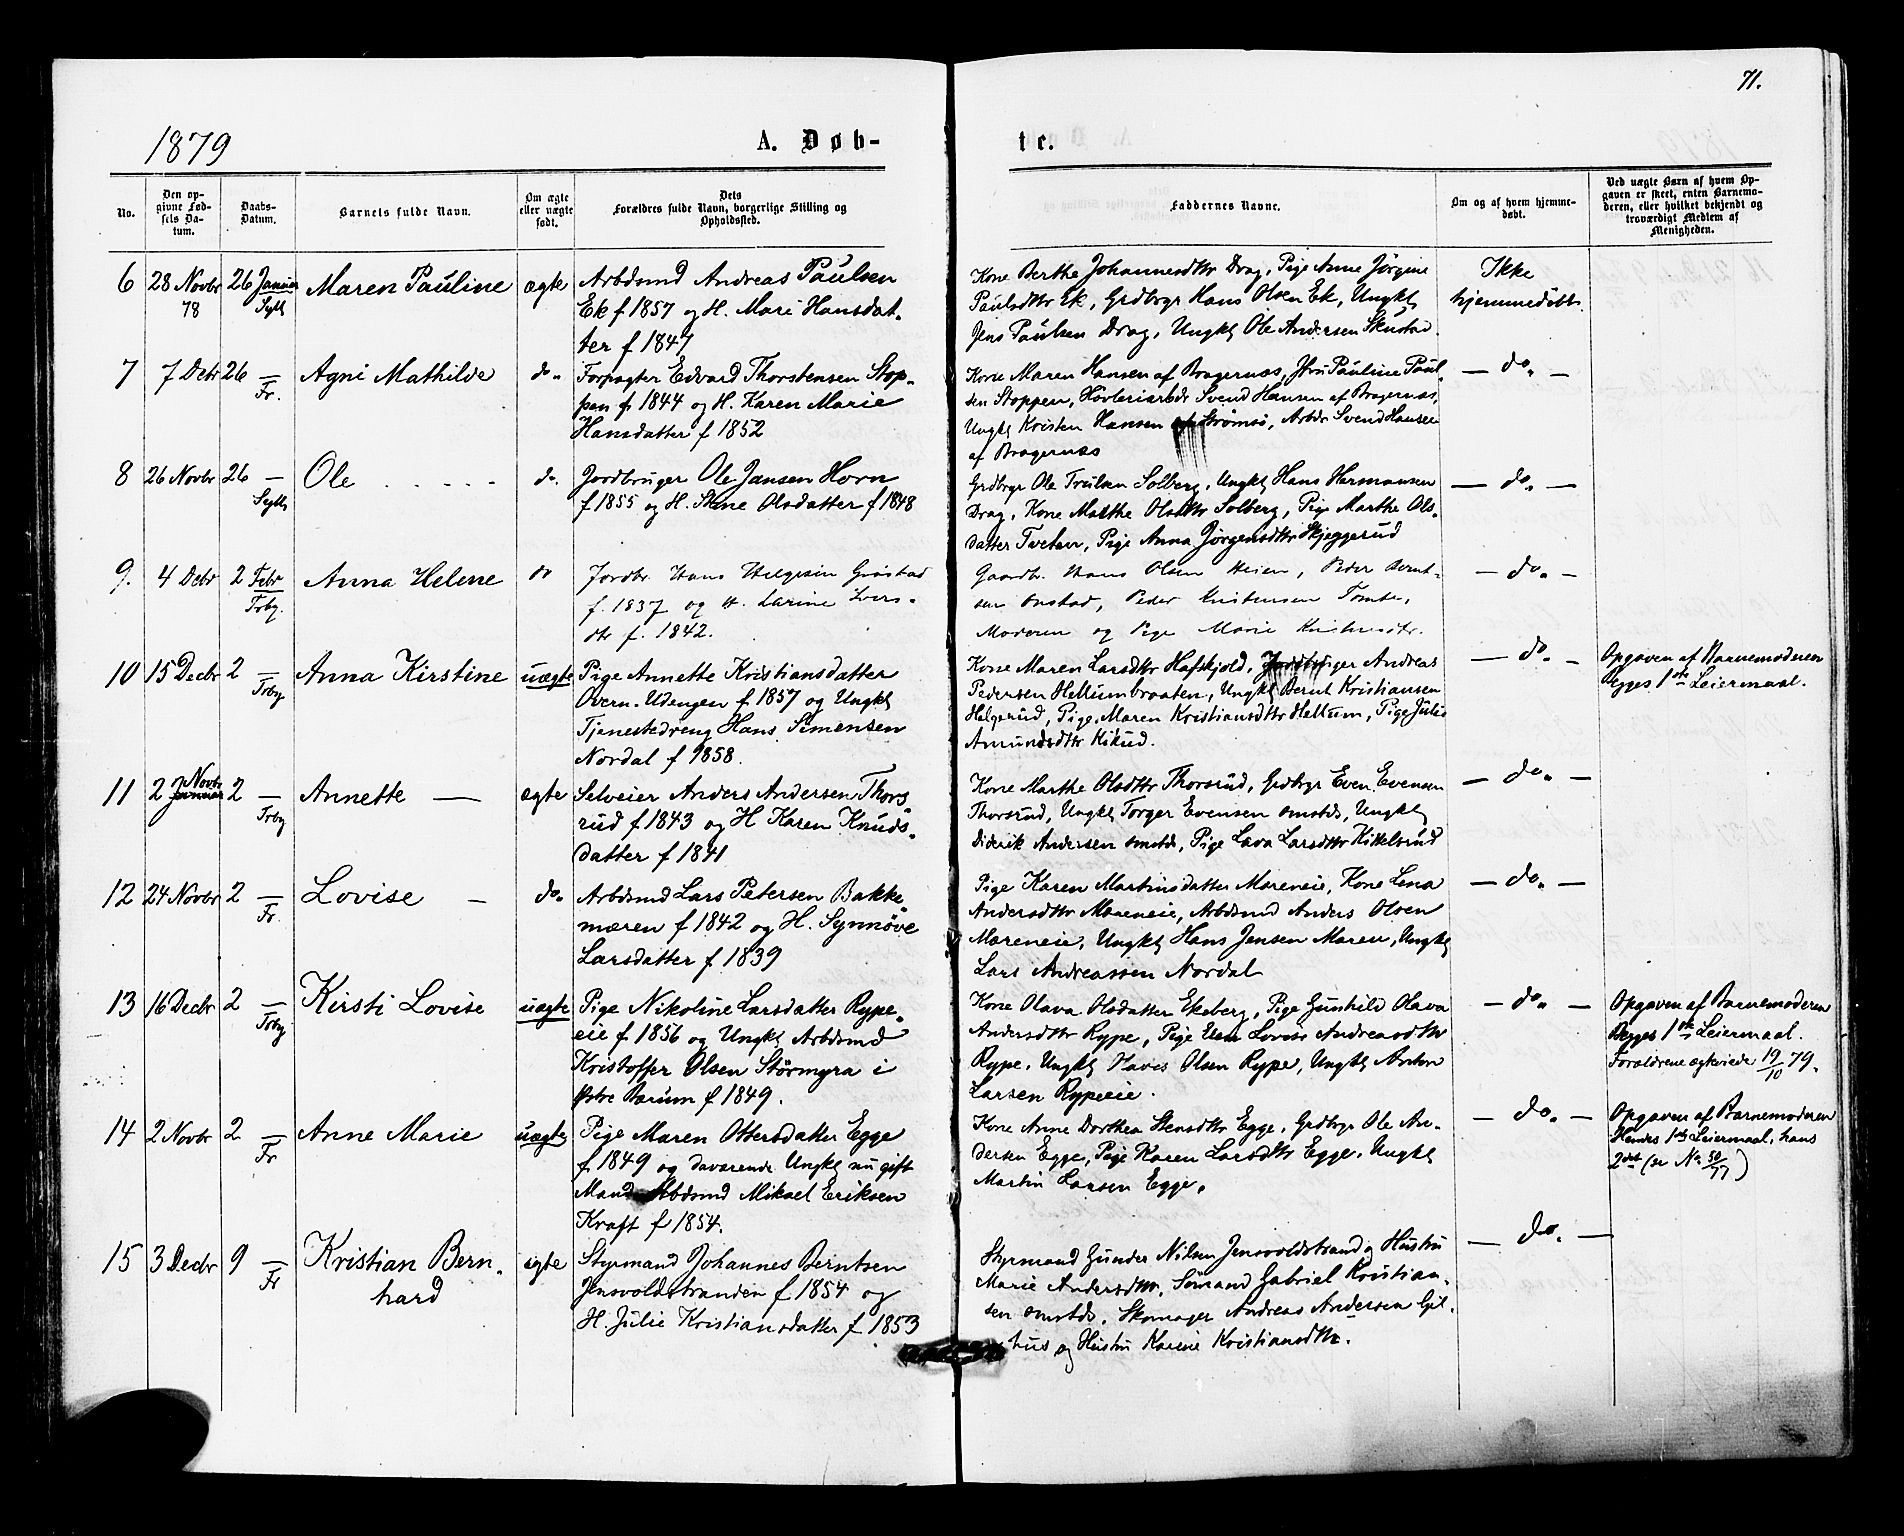 71.
1879
A. Døb-
te.
No.
Den op-
givne Fød-
sels Da-
tum.
Daabs-
Datum.
Barnets fulde Navn.
Om ægte
eller uægte
født.
Dets
Forældres fulde Navn, borgerlige Stilling og
Opholdssted.
Faddernes Navne.
Om og af hvem hjemme-
døbt.
Ved uægte Børn af hvem Op-
gaven er skeet, enten Barnemo-
deren, eller hvilket bekjendt og
troværdigt Medlem af
Menigheden.
6 28 Novbr 78 26 Januar Syll Maren Pauline ægte
Arbdsmd Andreas Paulsen
Ek f 1857 og H. Mari Hansdat-
ter f 1847
Kone Berthe Johannesdttr Drag, Pige Anne Jørgine
Paulsdttr Ek, Grdbrgr Hans Olsen Ek, Ungkl
Jens Paulsen Drag, Ungkl Ole Andersen Skustad.
Ikke
hjemmedøbt.
7 7 Debr 26 — Fr. Agni Mathilde do.
Forpagter Edvard Thorstensen Stop-
pen f. 1844 og H. Karen Marie
Hansdatter f 1852
Kone Maren Hansen af Bragernæs, Jfru Pauline Paul-
sen Stoppen, Høvleriarbdr Svend Hansen af Bragernæs,
Ungkl Kristen Hansen af Strømsø, Arbdr Svend Hansen
af Bragernæs
— do. —
8 26 Novbr 26 — Sylls Ole . . . . . do.
Jordbruger Ole Jansen Horn
f 1855 og H. Stine Olsdatter f 1848
Grdbrgr Ole Trulsen Solberg, Ungkl Hans Hermansen
Drag, Kone Marthe Olsdttr Solberg, Pige Marthe Ols-
datter Tveten, Pige Anna Jørgensdttr Skjeggerud
— do. —
9. 4 Debr 2 Febr Trby. Anna Helene do
Jordbr. Hans Helgesen Grøstad
f. 1837 og H. Larine Ivers-
dtr f. 1842.
Gaardbr. Hans Olsen Heien, Peder Bernt-
sen Onstad, Peder Kristensen Tomte,
Moderen og Pige Marie Kristensdtr.
— do. —
10 15 Decbr 2 — Trby Anna Kirstine uægte
Pige Annette Kristiansdatter
Overn-Udengen f 1857 og Ungkl
Tjenestedreng Hans Simensen
Nordal f 1858.
Kone Maren Larsdttr Hafskjold, Jordbruger Andreas
Pedersen Hellumbraaten, Ungkl Bernt Kristiansen
Helgerud, Pige Maren Kristiansdttr Hellum, Pige Julie
Amundsdttr Kikud.
— do. —
Opgaven af Barnemoderen
Begges 1ste Leiermaal.
11 2 Novbr 2 — Trby Annette — ægte
Selveier Anders Andersen Thors-
rud f 1843 og H Karen Knuds-
datter f 1841
Kone Marthe Olsdttr Thorsrud, Grdbrgr Even Evensen
Thorsrud, Ungkl Torger Evensen smstds, Ungkl
Diderik Andersen smstds, Pige Lava Larsdttr Kittelsrud
— do. —
12 24 Novbr 2 — Fr. Lovise — do.
Arbdsmd Lars Petersen Bakke-
mæren f 1842 og H. Synnøve
Larsdatter f 1839
Pige Karen Martinsdatter Mæreneie, Kone Lena
Andersdttr Mæreneie, Arbdsmd Anders Olsen
Mæreneie, Ungkl Hans Jensen Mæren, Ungkl
Lars Andreassen Nordal
— do. —
13 16 Decbr 2 — Trby Kirsti Lovise uægte
Pige Nikoline Larsdatter Rype-
eie f 1856 og Ungkl Arbdsmd
Kristoffer Olsen Störmyra i
Østre Bærum f 1849.
Kone Olava Olsdatter Ekeberg, Pige Gunhild Olava
Andersdttr Rype, Pige Lovise Andreasdttr
Rype, Ungkl Olsen Rype, Ungkl Anton
Larsen Rypeeie.
— do. —
Opgaven af Barnemoderen
Begges 1ste Leiermaal.
Forældrene ægteviede 19/10 79.
14 2 Novbr 2 — Fr Anne Marie uægte
Pige Maren Ottersdatter Egge
f 1849 og daværende Ungkl nu gift
Mand Arbdsmd Mikael Eriksen
Kraft f 1854.
Kone Anne Dorthea Stensdttr Egge, Grdbrgr Ole An-
dersen Egge, Pige Karen Larsdttr Egge, Ungkl
Martin Larsen Egge.
— do. —
Opgaven af Barnemoderen
Hendes 1ste Leiermaal, hans
2det (se No 50/77)
15 3 Decbr 9 — Fr Kristian Bern-
hard ægte
Styrmand Johannes Berntsen
Jensvoldstranden f 1854 og
H. Julie Kristiansdatter f 1853
Styrmand Gunder Nilsen Jensvoldstrand og Hustru
Marie Andersdttr, Sømand Gabriel Kristian-
sen smstds, Skomager Andreas Andersen Gil-
hus og Hustru Karine Kristiansdttr.
— do. —